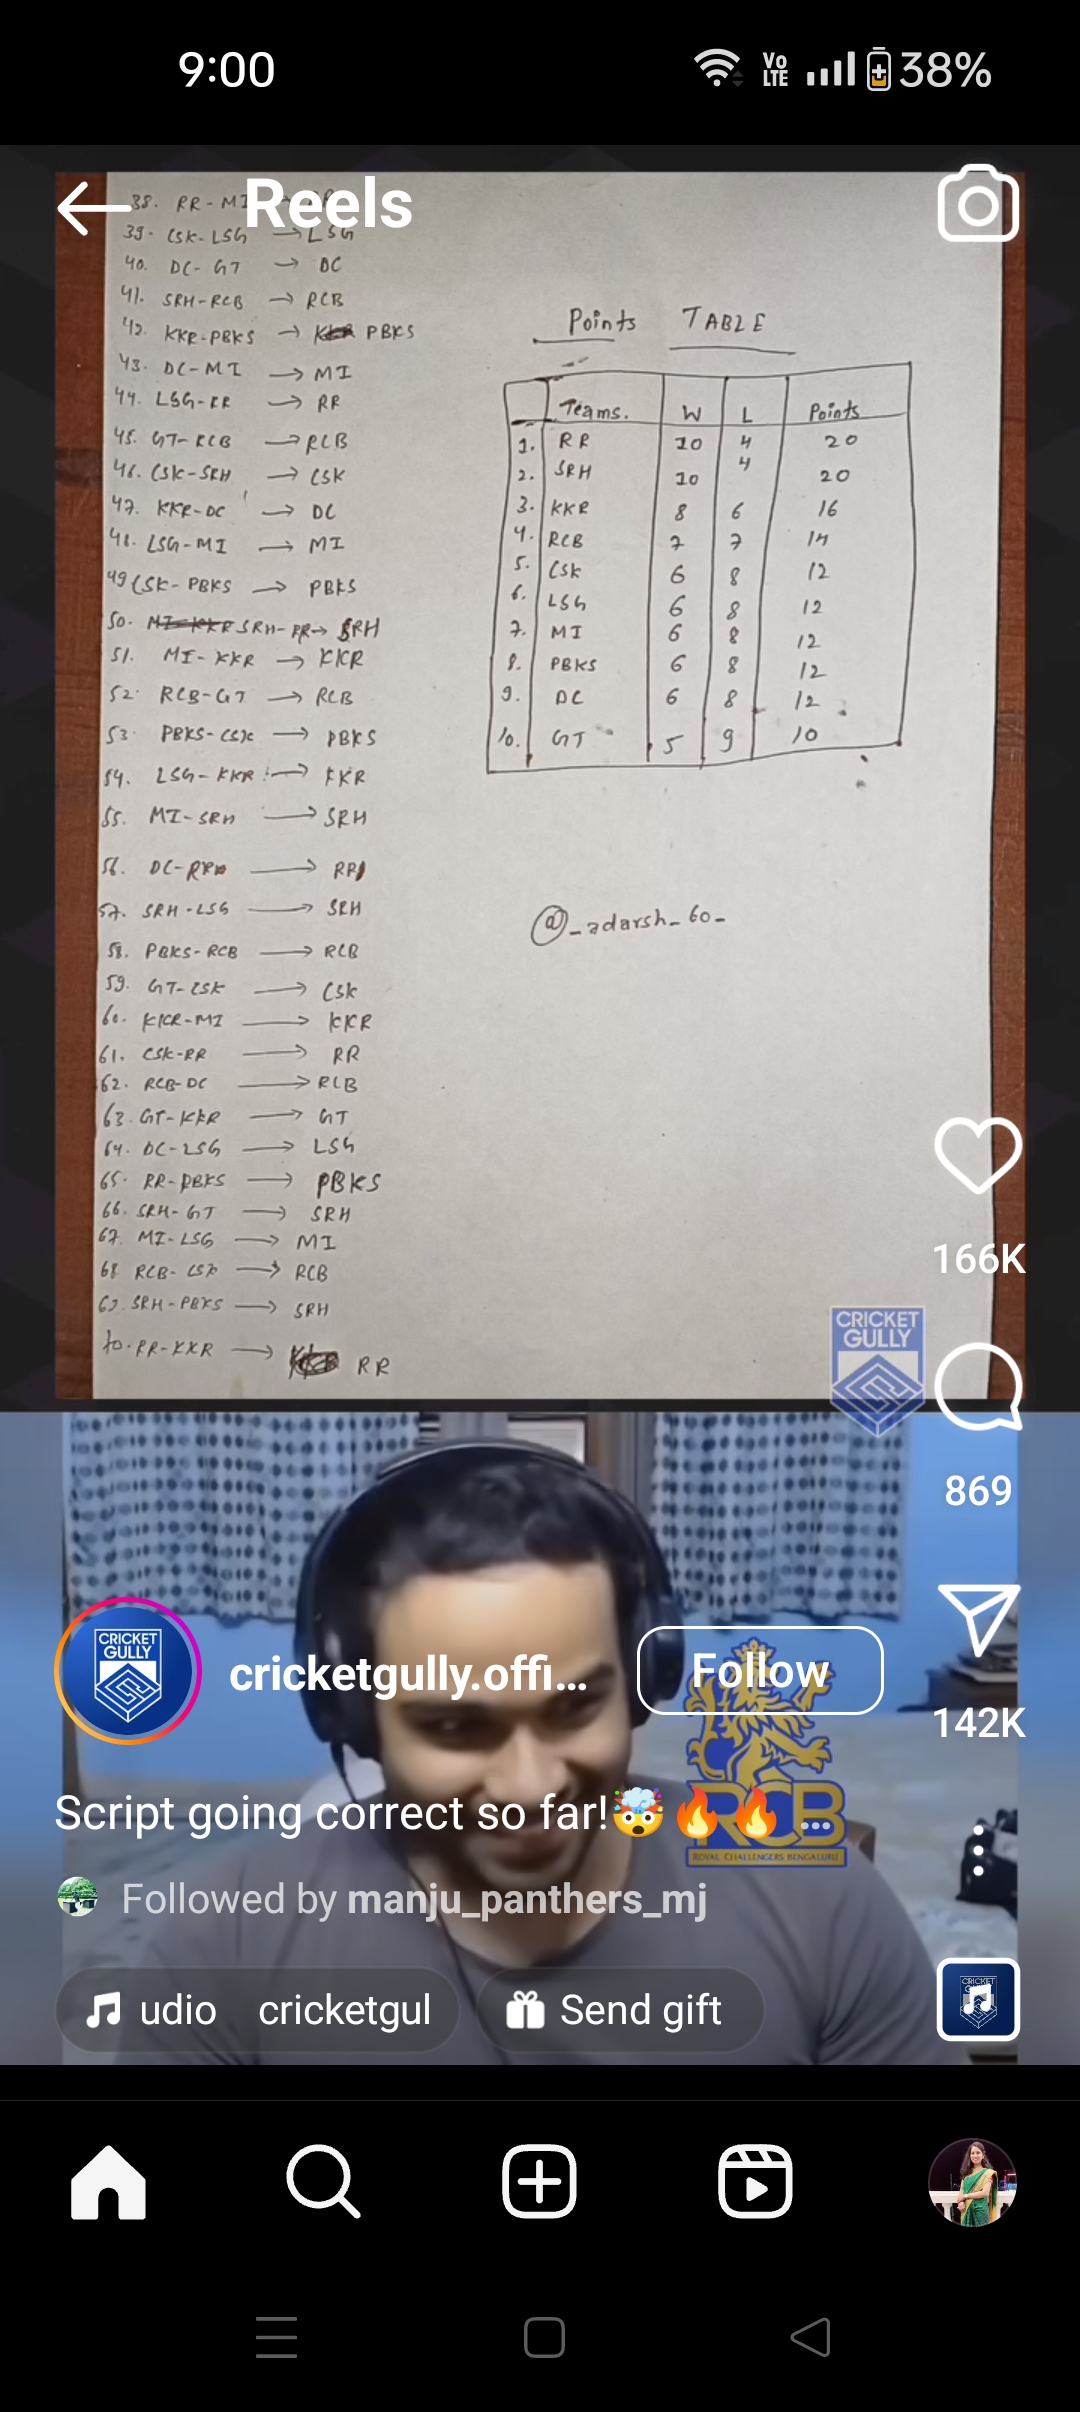 9:00
Vo LTE
38%
Reels
38. RR-MI
39. CSK-LSG → LSG
40. DC-GT → DC
41. SRH-RCB → RCB
42. KKR-PBKS → PBKS
43. DC-MI → MI
44. LSG-RR → RR
45. GT-RCB → RCB
46. CSK-SRH → CSK
47. KKR-DC → DC
48. LSG-MI → MI
49 CSK-PBKS → PBKS
50. SRH-RR → SRH
51. MI-KKR → KKR
52. RCB-GT → RCB
53. PBKS-CSK → PBKS
54. LSG-KKR → KKR
55. MI-SRH → SRH
56. DC-RR → RR
57. SRH-LSG → SRH
58. PBKS-RCB → RCB
59. GT-CSK → CSK
60. KKR-MI → KKR
61. CSK-RR → RR
62. RCB-DC → RCB
63. GT-KKR → GT
64. DC-LSG → LSG
65. RR-PBKS → PBKS
66. SRH-GT → SRH
67. MI-LSG → MI
68 RCB-CSK → RCB
69. SRH-PBKS → SRH
70. RR-KKR → RR
Points TABLE
Teams. W L Points
1. RR 10 4 20
2. SRH 10 4 20
3. KKR 8 6 16
4. RCB 7 7 14
5. CSK 6 8 12
6. LSG 6 8 12
7. MI 6 8 12
8. PBKS 6 8 12
9. DC 6 8 12
10. GT 5 9 10
@_adarsh_60_
166K
CRICKET
GULLY
869
142K
CRICKET
GULLY
cricketgully.offi...
Follow
RCB
ROYAL CHALLENGERS BENGALURU
Script going correct so far!🤯🔥🔥 ...
Followed by manju_panthers_mj
udio cricketgul
Send gift